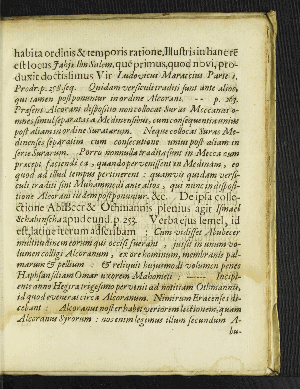 habita ordinis & temporis ratione, Illustris in hanc rē
est locus Jahiæ Ibn Salem, quē primus, quod novi, pro-
duxit doctissimus Vir Ludovicus Maraccius Parte I.
Prodr. p. 258. seq. Quidam versiculi traditi sunt ante alios,
qui tamen postponuntur in ordine Alcorani. -- p. 261.
Præsens Alcorani dispositio non collocat Suras Meccanas o-
mnes simul separatas a Medinensibus, cum consequentia unius
post aliam in ordine Suratarum. Neque collocat Suras Me-
dinenses separatim cum consecutione unius post aliam in
serie Surarum. Porro nonnulla tradita sunt in Mecca quæ
præcepit facienda, quando pervenisset in Medinam, eo
quod ad illud tempus pertinerent: quamvis quidam versi-
culi traditi sint Muhammedi ante alios, qui nunc in disposi-
tione Alcorani illi dem postponuntur. &c. De ipsa colle-
ctione Abu Becr & Othmannis plenius agit Ismael
Schahinscha apud eund. p. 253. Verba ejus lemet, id
est, latine iterum adscribam: Cum vidisset Abubecer
multitudinem eorum qui occisi fuerant, jussit in unum vo-
lumen collige Alcoranum, ex ore hominum, membranis pal-
marum & pellium &c. & reliquit hujusmodi volumen penes
Haphsam filiam Omar uxorem Mahometi: ---- Incipi-
ente anno Hegiræ trigesimo pervenit ad notitiam Othmannis,
id quod evenerat circa Alcoranum. Nimirum Eracenses di-
cebant: Alcoranus noster habet veriorem lectionem, quam
Alcoranus Syrorum: nos enim legimus illum secundum A-
bu-